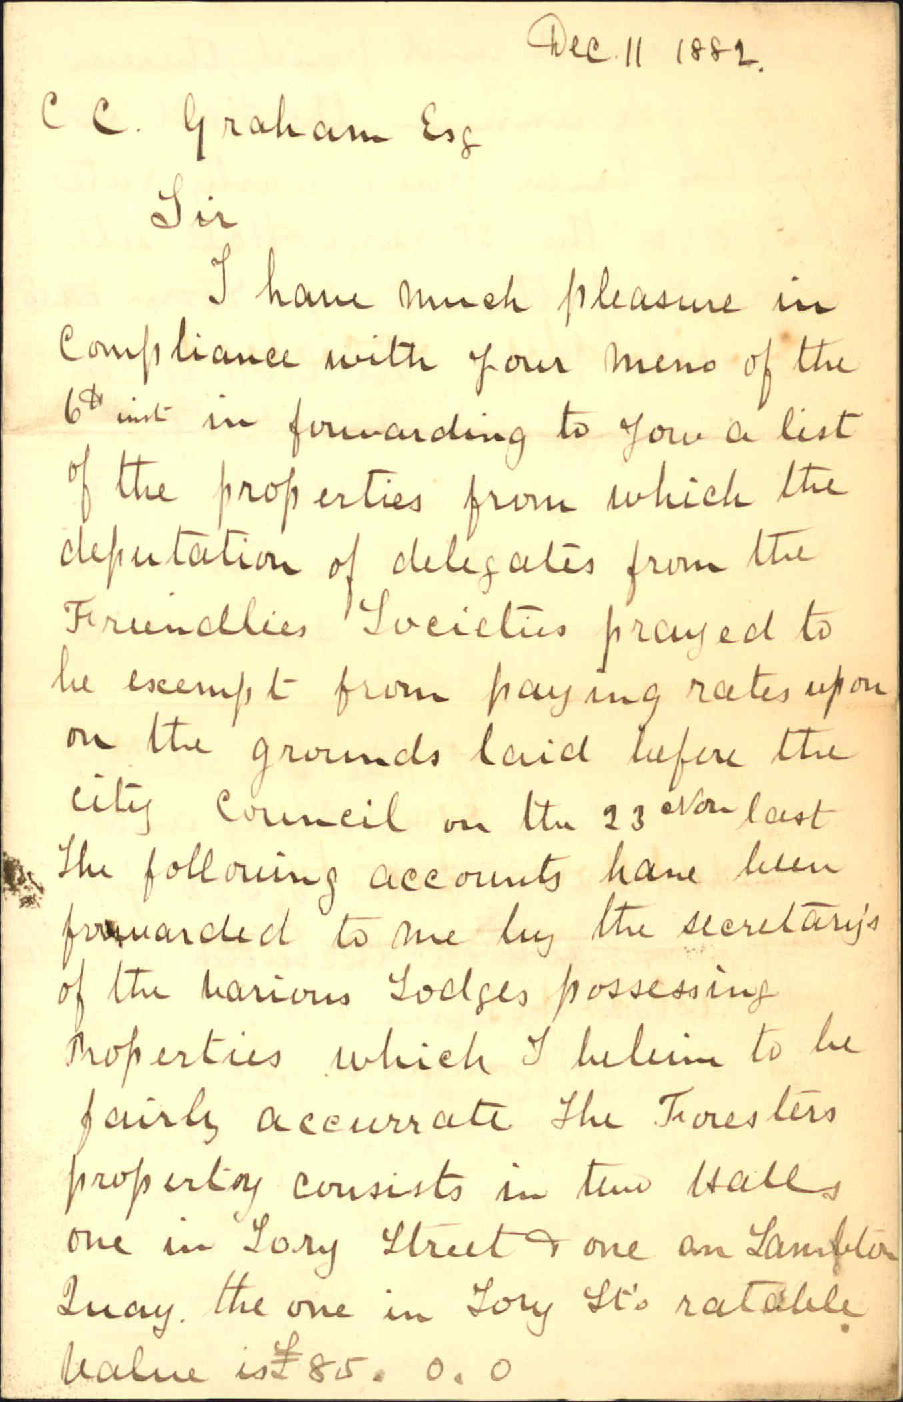 Dec. 11 1882.
C C. Graham Esq
Sir
I have much pleasure in
compliance with your memo of the
6th inst in forwarding to you a list
of the properties from which the
deputation of delegates from the
Friendlies Societies prayed to
be exempt from paying rates upon
on the grounds laid before the
city Council on the 23 Nov last
The following accounts have been
forwarded to me by the secretary's
of the various Lodges possessing
properties which I beleive to be
fairly accurrate The Foresters
property consists in two Halls
one in Tory Street & one on Lambton
Quay. the one in Tory St's ratable
value is £85. 0. 0